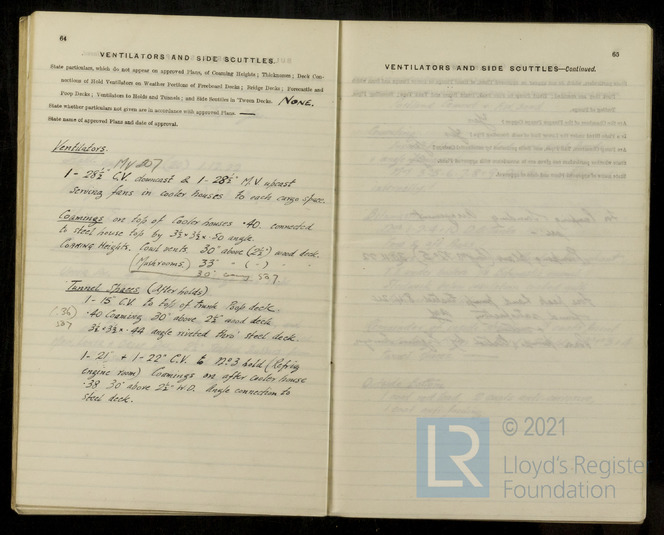 64
VENTILATORS AND SIDE SCUTTLES.
State particulars, which do not appear on approved Plans, of Coaming Heights; Thicknesses; Deck Con-
nections of Hold Ventilators on Weather Portions of Freeboard Decks; Bridge Decks; Forecastle and
Poop Decks; Ventilators to Holds and Tunnels; and Side Scuttles in 'Tween Decks. NONE.
State whether particulars not given are in accordance with approved Plans. —
State name of approved Plans and date of approval.
Ventilators.
1 - 28½" C.V. downcast & 1 - 28½" M.V. upcast
serving fans in cooler houses to each cargo space.
Coamings on top of cooler houses .40. connected
to steel house top by 3½ x 3½ x .50 angle.
Coaming Heights. Cowl vents. 30" above (2½") wood deck.
(Mushrooms.) 33" " ( " ) " "
30"
Tunnel Spaces (After holds)
1 - 15" C.V. to top of trunk Poop deck.
.40 Coaming 30" above 2½" wood deck
3½ x 3½ x .44 angle riveted thro' steel deck.
1 - 21" & 1 - 22" C.V. to No. 3. hold (Refrig
engine room) Coamings on after cooler house
.38 30" above 2½" W.D. Angle connection to
steel deck.
65
VENTILATORS AND SIDE SCUTTLES—Continued.
LR
© 2021
Lloyd's Register
Foundation